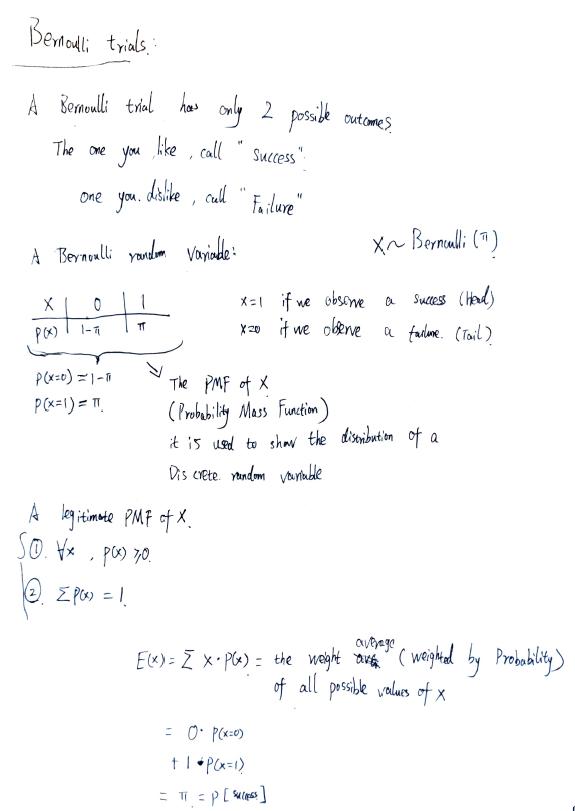 Bernoulli trials:
A Bernoulli trial has only 2 possible outcomes
The one you like, call "Success".
one you. dislike, call "Failure"
A Bernoulli random Variable:
X ~ Bernoulli (π)
X | 0 | 1
P(x) | 1-π | π
x=1 if we observe a success (Head)
x=0 if we observe a failure. (Tail)
P(x=0) = 1-π
P(x=1) = π.
The PMF of X
(Probability Mass Function)
it is used to show the distribution of a
Discrete random variable
A legitimate PMF of X.
①. ∀x , p(x) ≥0.
②. ΣP(x) = 1.
E(x) = Σ x·P(x) = the weight average (weighted by Probability)
of all possible values of x
= 0· P(x=0)
+ 1·P(x=1)
= π = P[success]